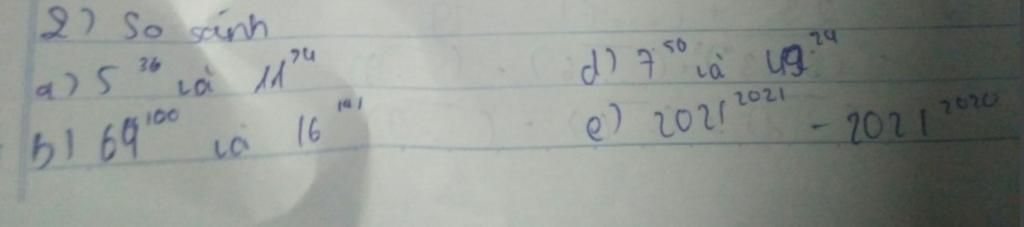 2) So sánh
a) 5³⁶ và 11²⁴
b) 64¹⁰⁰ và 16¹⁶¹
d) 7⁵⁰ và 49²⁴
e) 2021²⁰²¹ - 2021²⁰²⁰